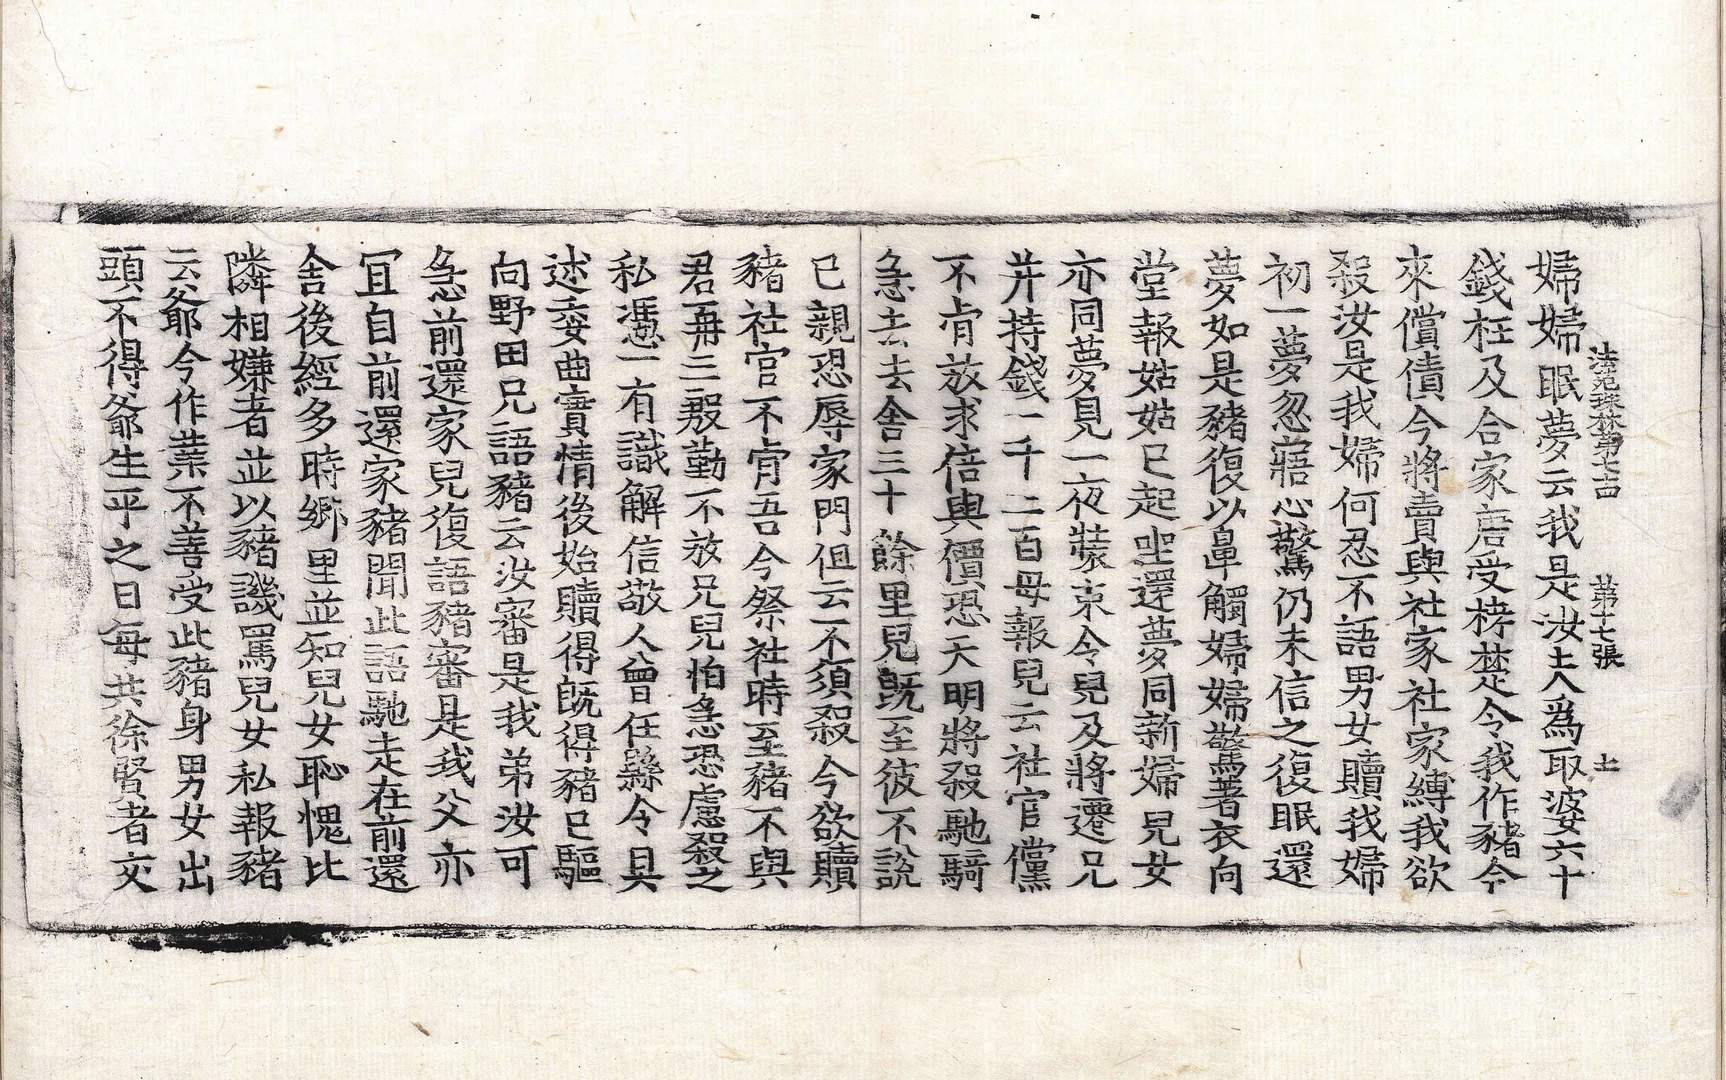 法苑珠林第七十 第十七張 土
婦婦眠夢云我是汝夫爲取婆六十
錢枉及合家唐受栲楚令我作豬今
來償債今將賣與社家社家縛我欲
殺汝是我婦何忍不語男女贖我婦
初一夢忽寤心驚仍未信之復眠還
夢如是豬復以鼻觸婦婦驚著衣向
堂報姑姑已起坐還夢同新婦兒女
亦同夢見一夜裝束令兒及將遷兄
并持錢一千二百母報兒云社官儻
不肯放求倍與價恐天明將殺馳騎
急去去舍三十餘里兒旣至彼不說
已親恐辱家門但云不須殺今欲贖
豬社官不肯吾今祭社時至豬不與
君再三殷勤不放兄兒怕急恐慮殺之
私憑一有識解信敬人曾任縣令具
述委曲實情後始贖得旣得豬已驅
向野田兄語豬云汝審是我弟汝可
急前還家兒復語豬審是我父亦
冝自前還家豬聞此語馳走在前還
舍後經多時鄉里並知兒女恥愧比
隣相嫌者並以豬譏罵兒女私報豬
云爺今作業不善受此豬身男女出
頭不得爺生平之日每共徐賢者交